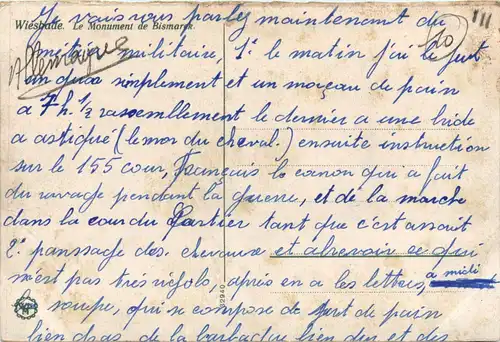 Wiesbade. Le Monument de Bismarck.
Je vais vous parler maintenant du
Allemagne
10
métier militaire, 1° le matin j'ai le jus
simplement et un morceau de pain
a 7h. 1/2 rassemblement le dernier a une bride
a astiqué (le mor du cheval) ensuite instruction
sur le 155 cour, Français le canon qui a fait
du ravage pendant la guerre, et de la marche
dans la cour du Cartier tant que c'est assaut
2° panssage des chevaux et abrevoir ce qui
m'est pas très rigolo, après en a les lettres, a midi
soupe, qui se compose de de pain
bien gras, de la barbaque bien dur et des